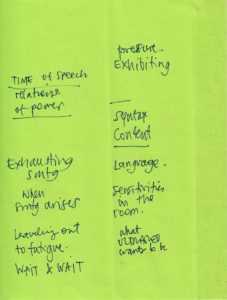 TIME of Speech
relations
of power
Exhausting
smtg
when
smtg arises
Leaving out
to fatigue.
WAIT & WAIT
pressure.
Exhibiting
Syntax
Content
Language.
Sensitivities
in the
room.
what
wants to be